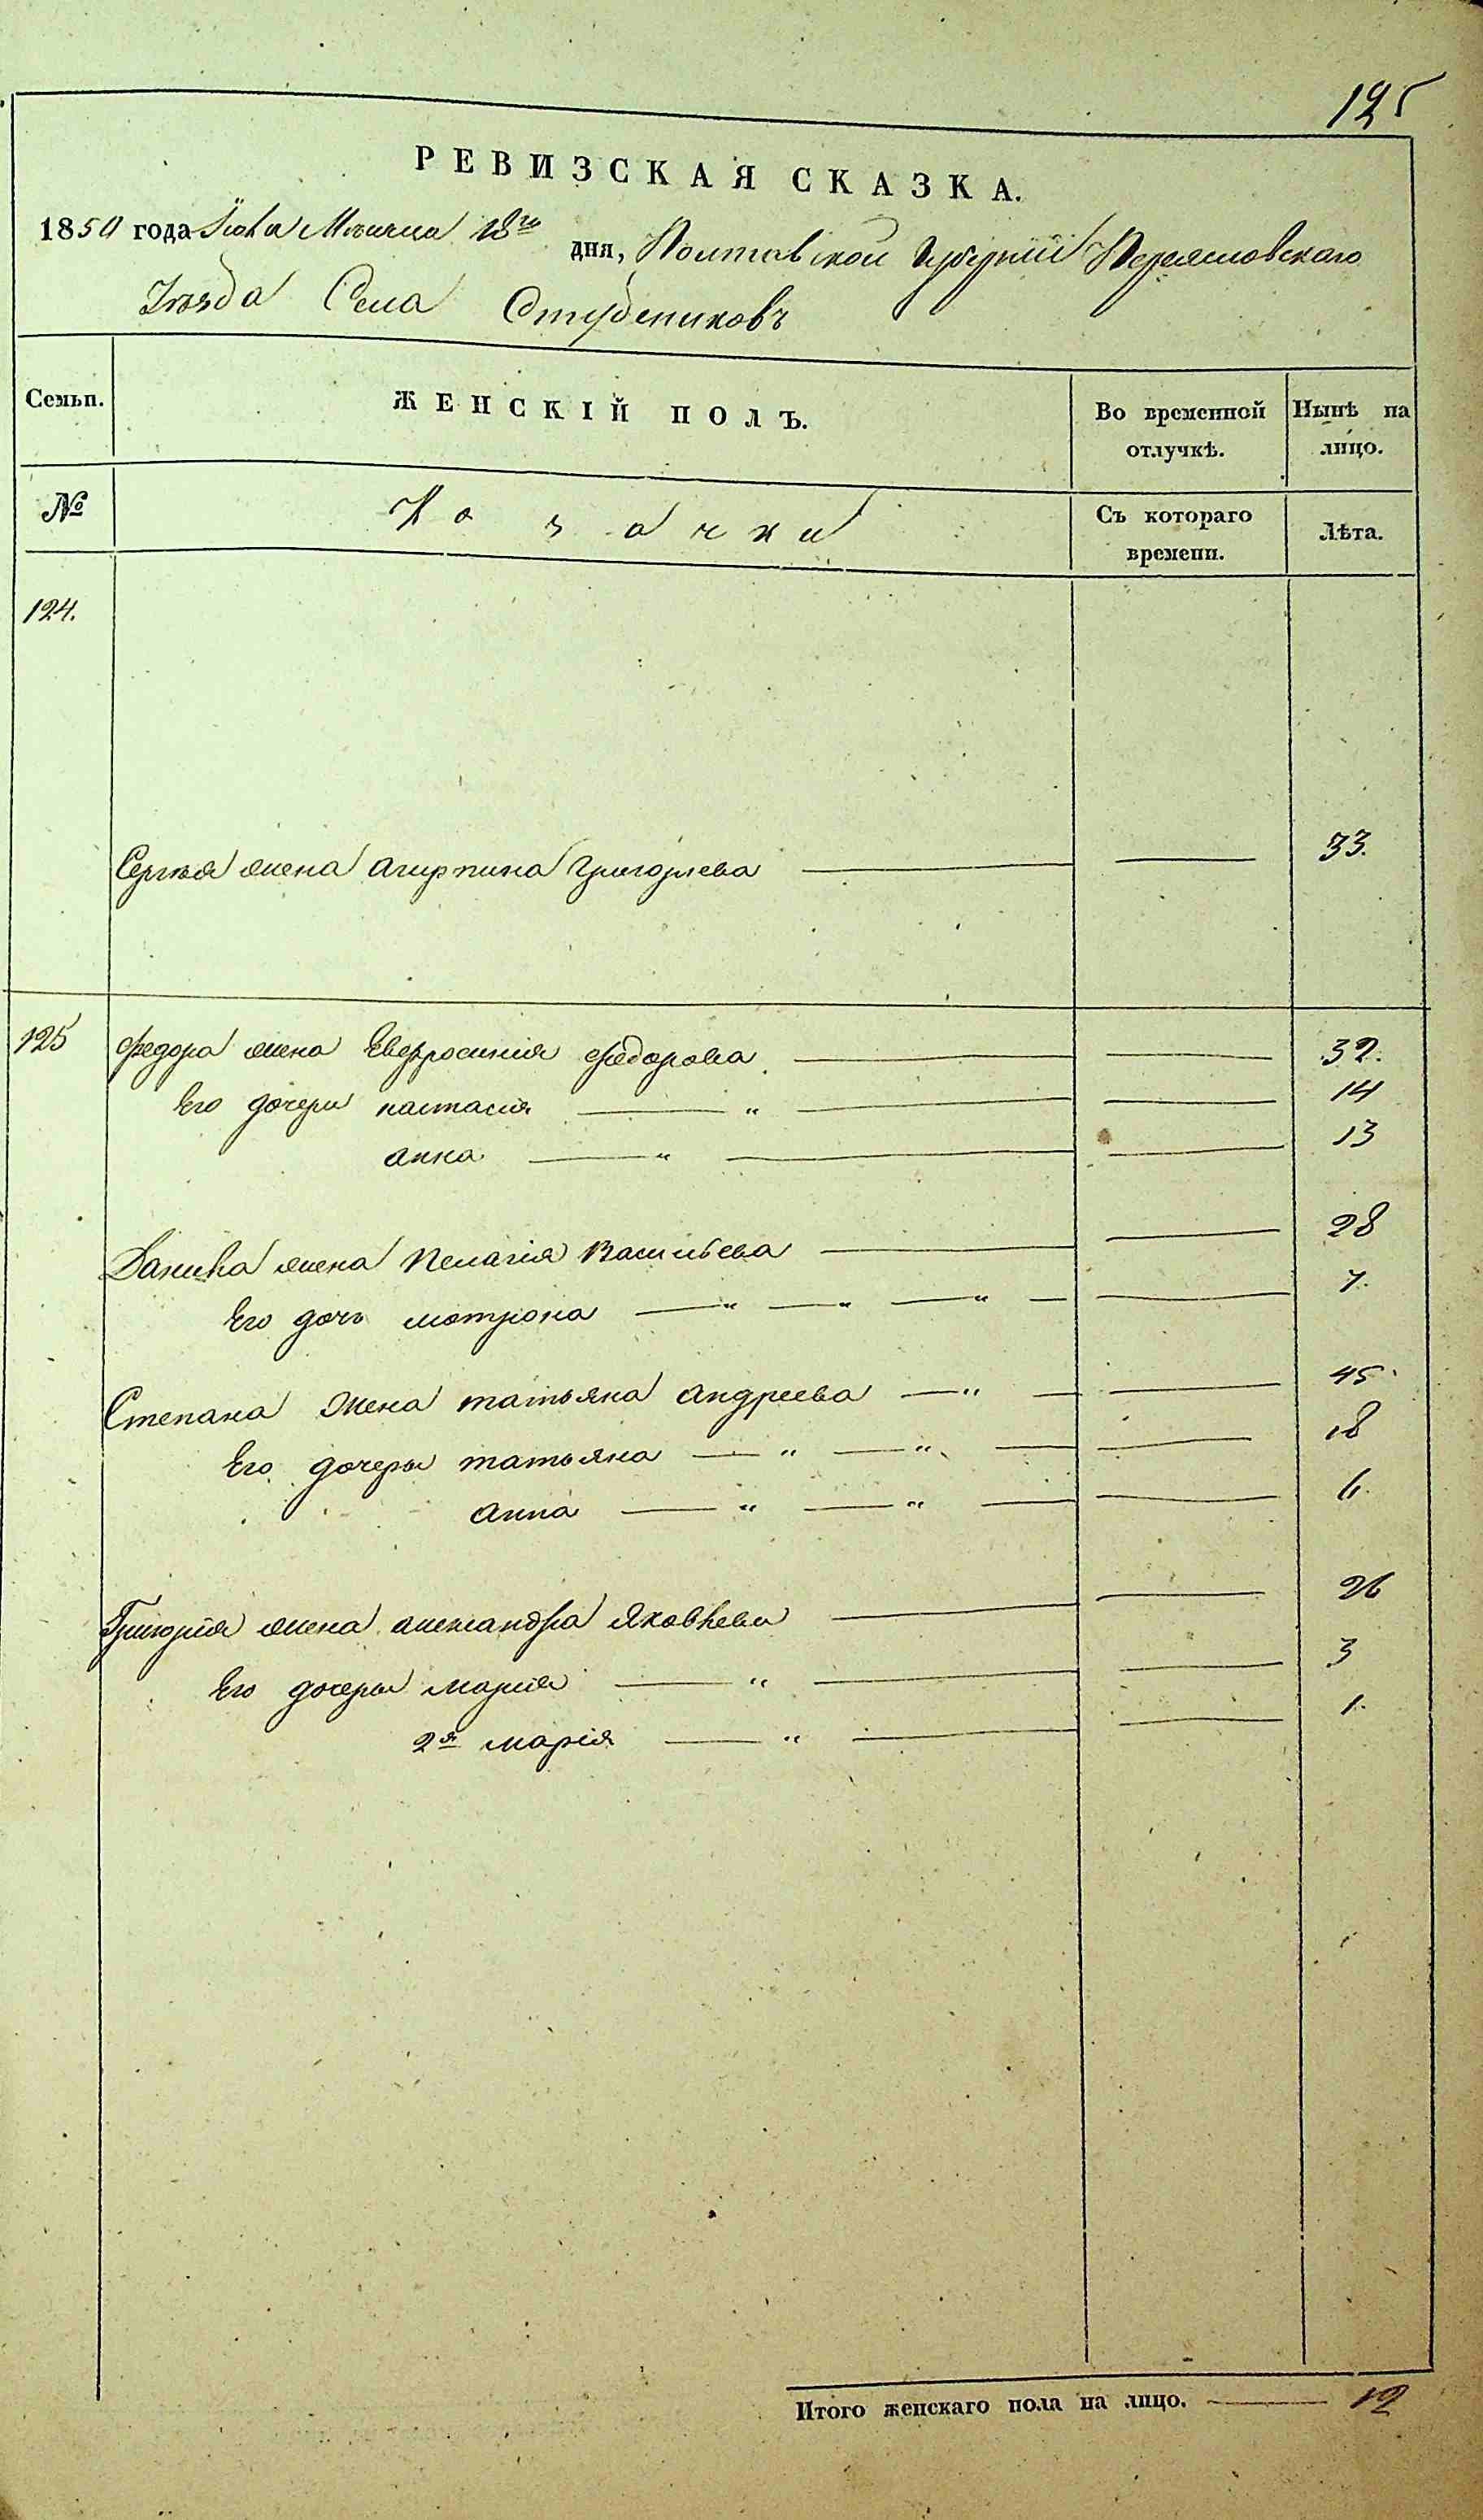 125
РЕВИЗСКАЯ СКАЗКА.
1850 года Июля Месяца 18го дня, Полтавской Губернии Переясловскаго
Уезда Села Студениковъ
Семьи. ЖЕНСКІЙ ПОЛЪ. Во временной отлучкѣ. Нынѣ на лицо.
№ Козачки Съ котораго времени. Лѣта.
124.
Сергея жена Агирпина Григорьева — — 33.
125 Федора жена Евфросиния Федорова — — 32.
Его дочери настасия — " — — 14
анна — " — — 13
Данила жена Пелагия Васильева — — 28
Его дочь мотрона — " — " — " — — 7.
Степана Жена татьяна андреева — " — — 45
Его дочеры татьяна — " — " — — 18
анна — " — " — — 6.
Григория жена александра Яковлева — — 26
Его дочеры мария — " — — 3
2я марія — " — — 1.
Итого женскаго пола на лицо. — 12